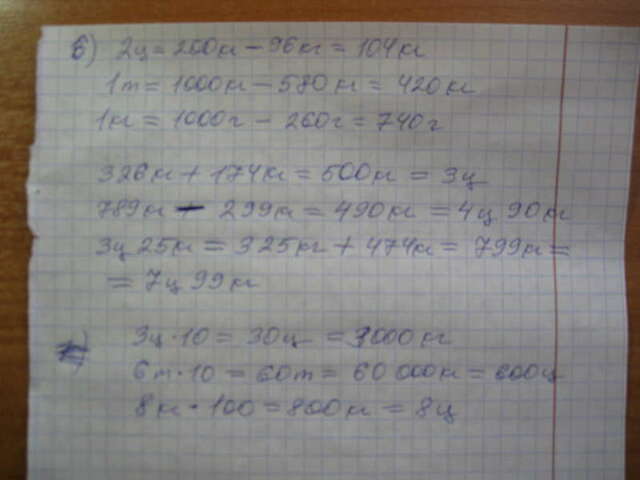 б) 2ц = 200кг - 96кг = 104кг
1т = 1000кг - 580кг = 420кг
1кг = 1000г - 260г = 740г
326кг + 174кг = 500кг = 3ц
789кг - 299кг = 490кг = 4ц 90кг
3ц 25кг = 325кг + 474кг = 799кг =
= 7ц 99кг
3ц · 10 = 30ц = 3000кг
6т · 10 = 60т = 60 000кг = 600ц
8кг · 100 = 800кг = 8ц